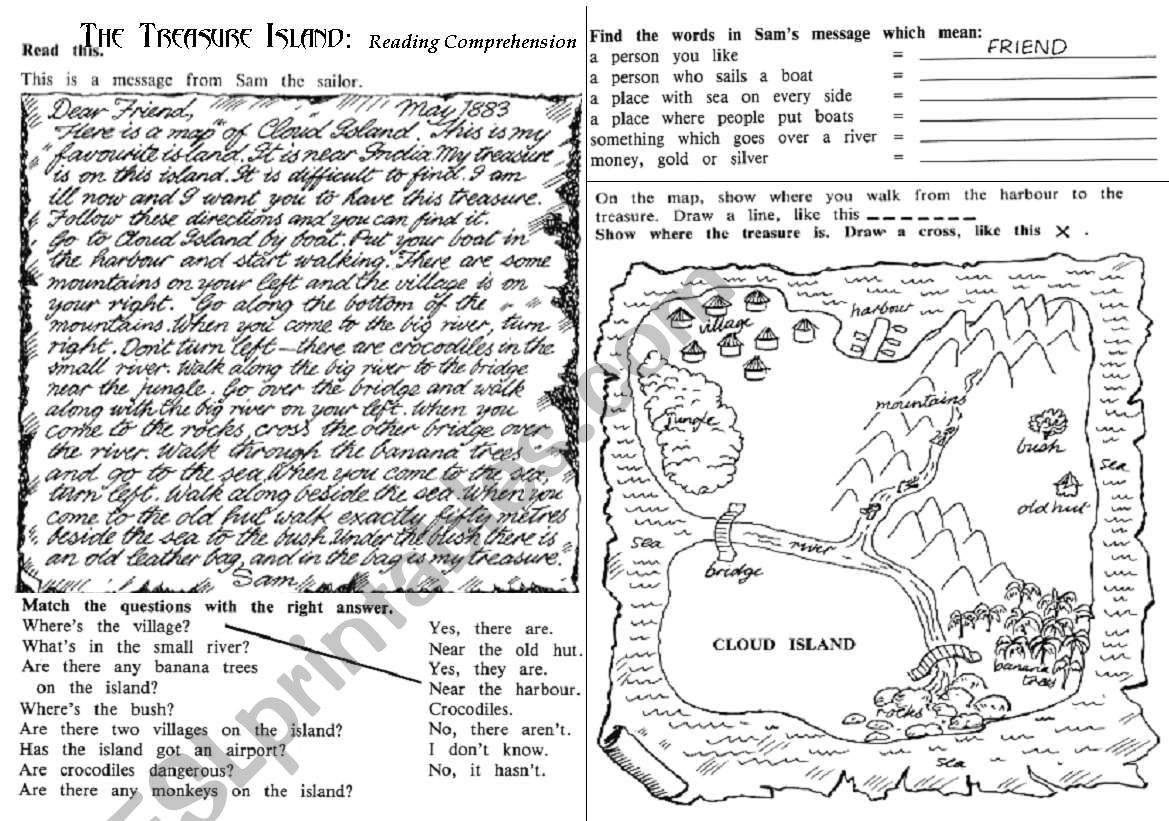 THE TREASURE ISLAND: Reading Comprehension
Read this.
This is a message from Sam the sailor.
Dear Friend, May 1883
Here is a map of Cloud Island. This is my
favourite island. It is near India. My treasure
is on this island. It is difficult to find. I am
ill now and I want you to have this treasure.
Follow these directions and you can find it.
Go to Cloud Island by boat. Put your boat in
the harbour and start walking. There are some
mountains on your left and the village is on
your right. Go along the bottom of the
mountains. When you come to the big river, turn
right. Don't turn left – there are crocodiles in the
small river. Walk along the big river to the bridge
near the jungle. Go over the bridge and walk
along with the big river on your left. When you
come to the rocks, cross the other bridge over
the river. Walk through the banana trees
and go to the sea. When you come to the sea,
turn left. Walk along beside the sea. When you
come to the old hut walk exactly fifty metres
beside the sea to the bush. Under the bush there is
an old leather bag, and in the bag is my treasure.
Sam
Match the questions with the right answer.
Where's the village?
What's in the small river?
Are there any banana trees
on the island?
Where's the bush?
Are there two villages on the island?
Has the island got an airport?
Are crocodiles dangerous?
Are there any monkeys on the island?
Yes, there are.
Near the old hut.
Yes, they are.
Near the harbour.
Crocodiles.
No, there aren't.
I don't know.
No, it hasn't.
Find the words in Sam's message which mean:
a person you like = FRIEND
a person who sails a boat =
a place with sea on every side =
a place where people put boats =
something which goes over a river =
money, gold or silver =
On the map, show where you walk from the harbour to the
treasure. Draw a line, like this
Show where the treasure is. Draw a cross, like this X .
village
harbour
jungle
mountains
bush
sea
old hut
sea
river
bridge
CLOUD ISLAND
banana
trees
rocks
sea
ESLprintables.com